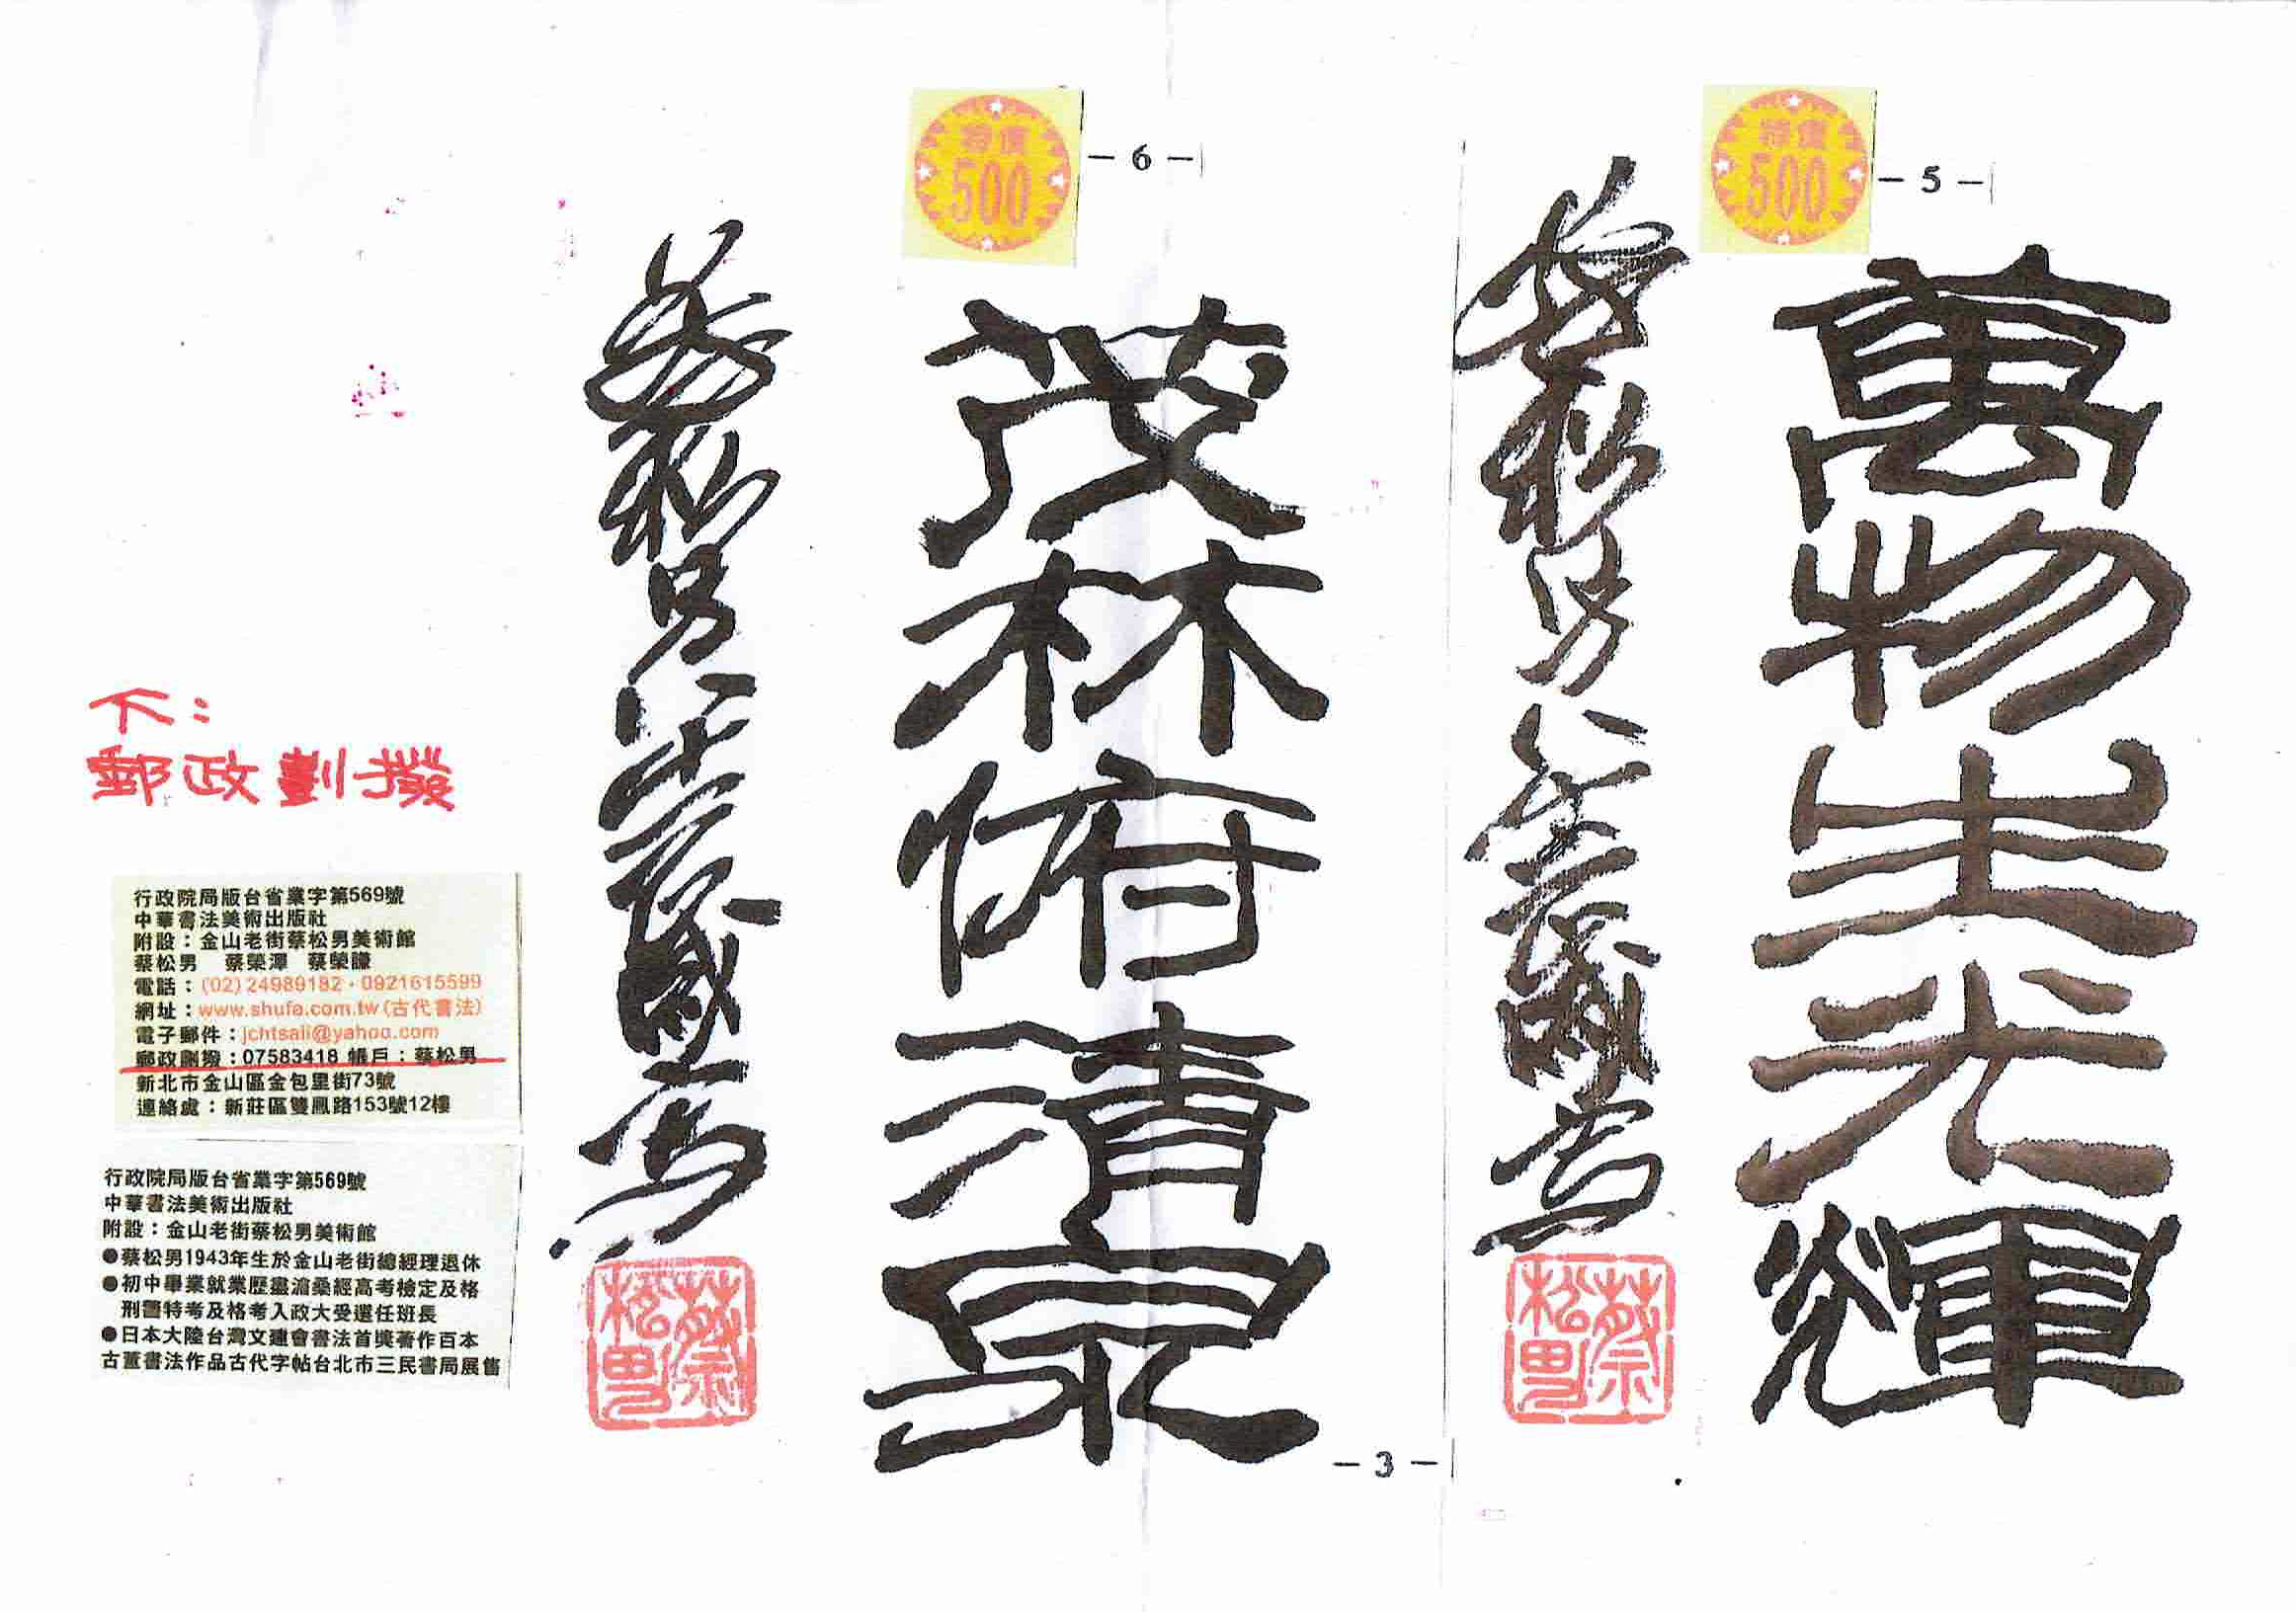 特價
500
－5－
萬物生光輝
蔡松男
蔡松男
特價
500
－6－
茂林俯清泉
蔡松男
蔡松男
－3－
下：
郵政劃撥
行政院局版台省業字第569號
中華書法美術出版社
附設：金山老街蔡松男美術館
蔡松男　蔡榮澤　蔡榮謙
電話：(02)24989182・0921615599
網址：www.shufa.com.tw(古代書法)
電子郵件：jchtsaii@yahoo.com
郵政劃撥：07583418 帳戶：蔡松男
新北市金山區金包里街73號
連絡處：新莊區雙鳳路153號12樓
行政院局版台省業字第569號
中華書法美術出版社
附設：金山老街蔡松男美術館
●蔡松男1943年生於金山老街總經理退休
●初中畢業就業歷盡滄桑經高考檢定及格
刑警特考及格考入政大受選任班長
●日本大陸台灣文建會書法首獎著作百本
古董書法作品古代字帖台北市三民書局展售